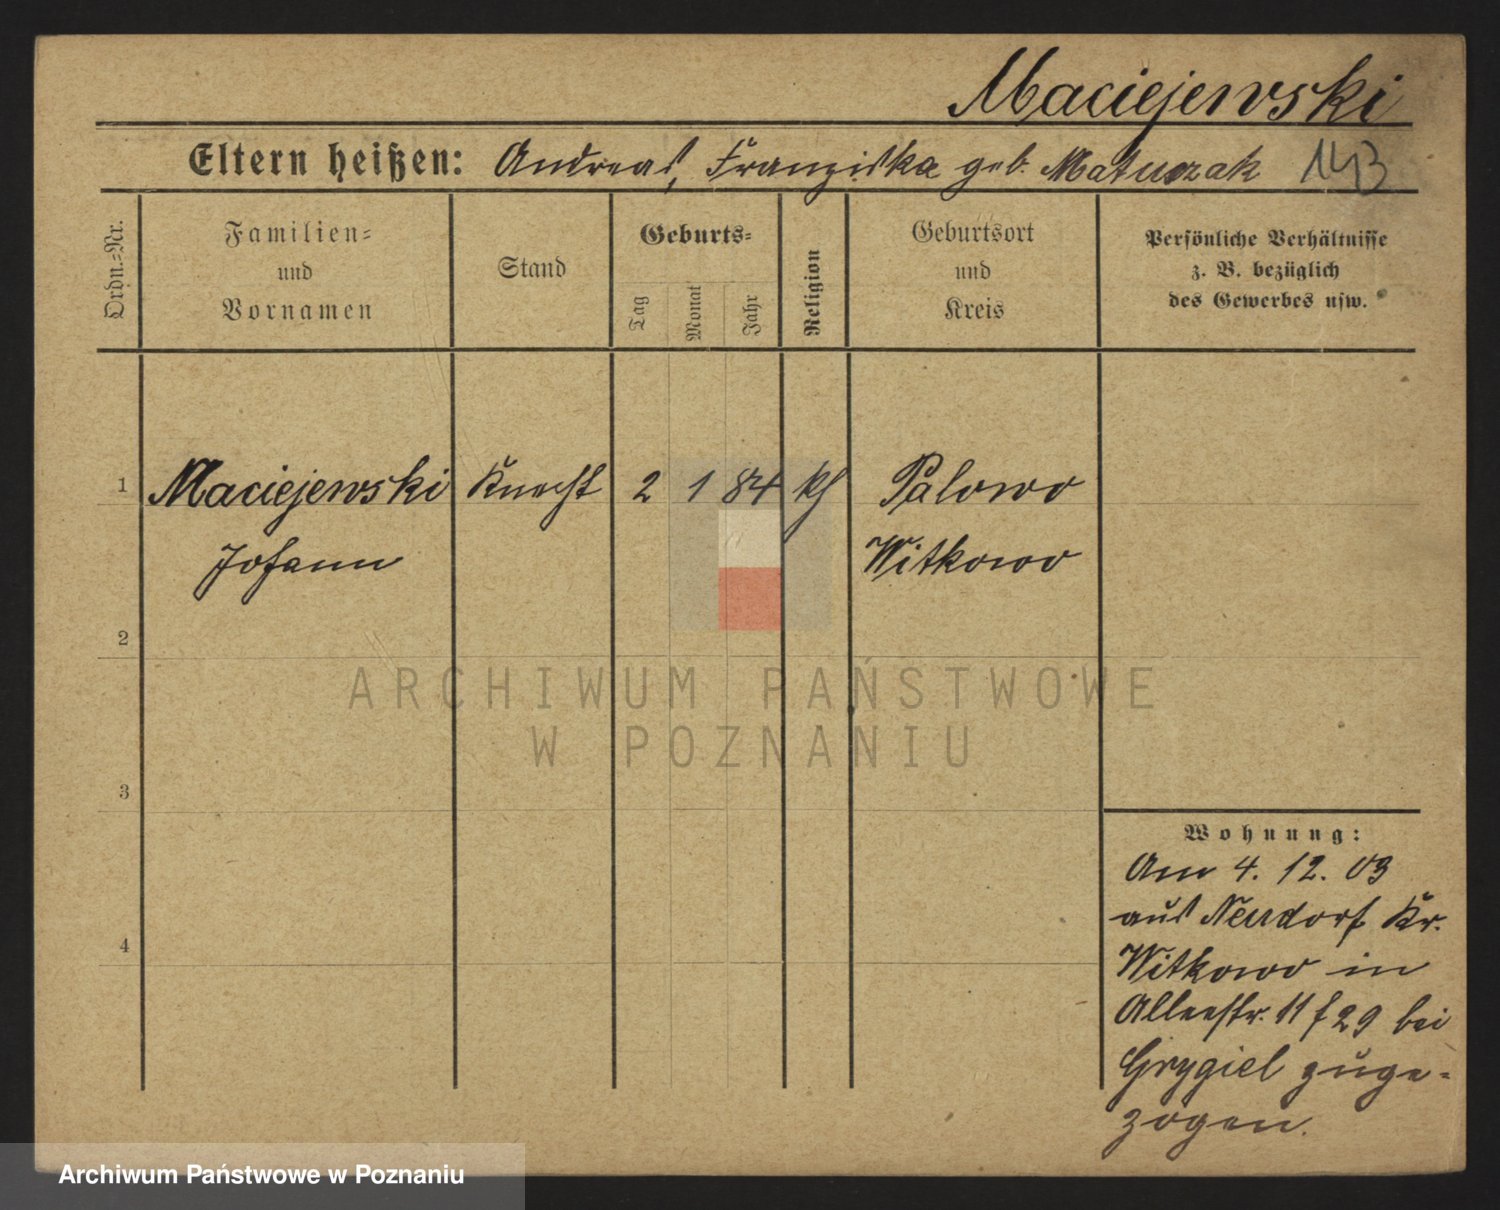 Maciejewski
Eltern heißen: Andreas, Franziska geb. Matuszak 143
Ordn.=Nr.
Familien=
und
Vornamen
Stand
Geburts=
Tag
Monat
Jahr
Religion
Geburtsort
und
Kreis
Persönliche Verhältnisse
z. B. bezüglich
des Gewerbes usw.
1 Maciejewski Knecht 2 1 84 kth Palowo
Johann Witkowo
2
ARCHIWUM PAŃSTWOWE
W POZNANIU
3
4
Wohnung:
Am 4. 12. 03
aus Neudorf Kr.
Witkowo in
Alleestr. 11 f 29 bei
Grygiel zuge=
zogen.
Archiwum Państwowe w Poznaniu